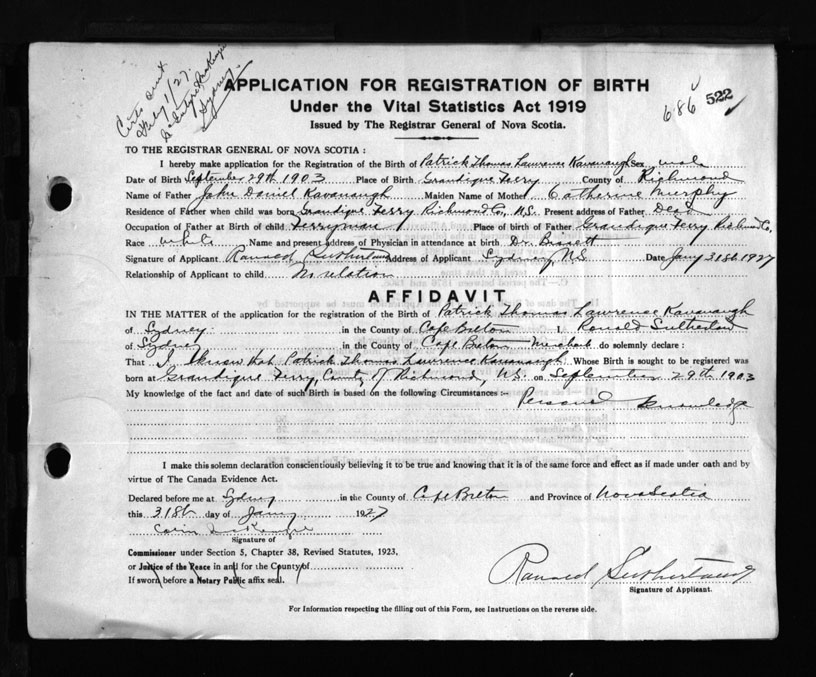 Certs sent
APPLICATION FOR REGISTRATION OF BIRTH
686 522
Under the Vital Statistics Act 1919
Sydney
Issued by The Registrar General of Nova Scotia.
TO THE REGISTRAR GENERAL OF NOVA SCOTIA :
I hereby make application for the Registration of the Birth of Patrick Thomas Lawrence Kavanaugh Sex male
Date of Birth September 29th 1903 Place of Birth Grandique Ferry County of Richmond
Name of Father John Daniel Kavanaugh Maiden Name of Mother Catherine Murphy
Residence of Father when child was born Grandique Ferry Richmond Co, N.S. Present address of Father Dead
Occupation of Father at Birth of child Ferryman Place of birth of Father Grandique Ferry Richmond Co,
Race white Name and present address of Physician in attendance at birth Dr. Bissett
Signature of Applicant Ranald Sutherland Address of Applicant Sydney, N.S Date Jany 31st 1927
Relationship of Applicant to child No relation
AFFIDAVIT
IN THE MATTER of the application for the registration of the Birth of Patrick Thomas Lawrence Kavanaugh
of Sydney in the County of Cape Breton I, Ronald Sutherland
of Sydney in the County of Cape Breton Merchant do solemnly declare :
That I Know that Patrick Thomas Lawrence Kavanaugh Whose Birth is sought to be registered was
born at Grandique Ferry, County of Richmond, N.S. on September 29th 1903
My knowledge of the fact and date of such Birth is based on the following Circumstances :-
Personal Knowledge
I make this solemn declaration conscientiously believing it to be true and knowing that it is of the same force and effect as if made under oath and by
virtue of The Canada Evidence Act.
Declared before me at Sydney in the County of Cape Breton and Province of Nova Scotia
this 31st day of Jany 1927
Signature of
Commissioner under Section 5, Chapter 38, Revised Statutes, 1923.
or Justice of the Peace in and for the County of
If sworn before a Notary Public affix seal.
Ranald Sutherland
Signature of Applicant.
For Information respecting the filling out of this Form, see Instructions on the reverse side.